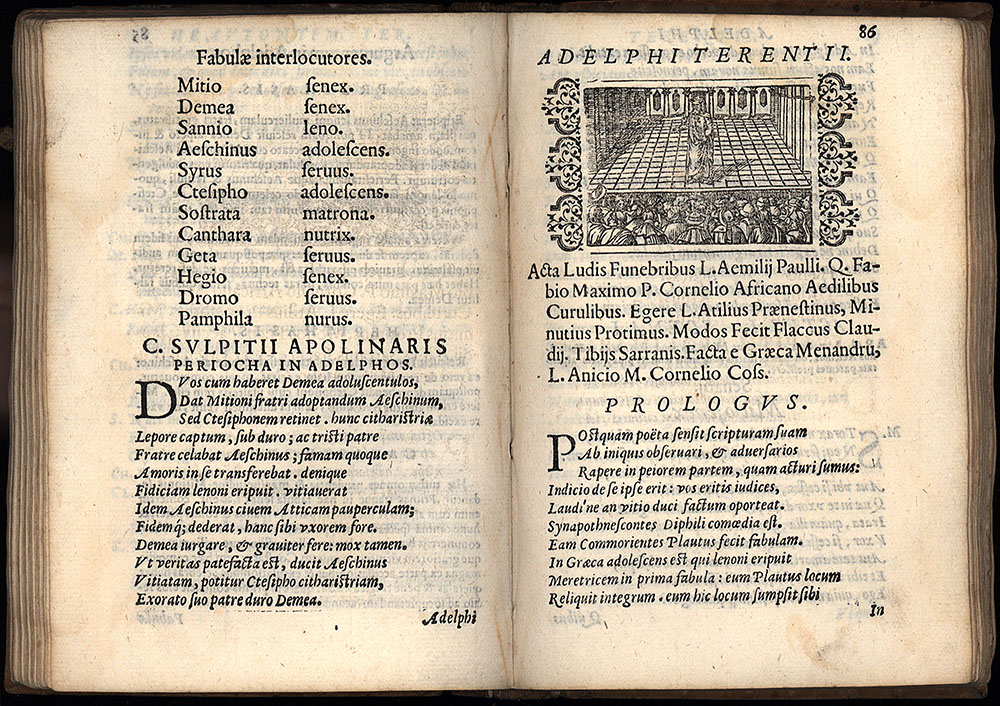 Fabulæ interlocutores.
Mitio ſenex.
Demea ſenex.
Sannio leno.
Aeſchinus adoleſcens.
Syrus ſeruus.
Cteſipho adoleſcens.
Soſtrata matrona.
Canthara nutrix.
Geta ſeruus.
Hegio ſenex.
Dromo ſeruus.
Pamphila nurus.
C. SVLPITII APOLINARIS
PERIOCHA IN ADELPHOS.
DVos cum haberet Demea adoluſcentulos,
Dat Mitioni fratri adoptandum Aeſchinum,
Sed Cteſiphonem retinet. hunc cithariſtriæ
Lepore captum, ſub duro; ac triſti patre
Fratre celabat Aeſchinus; famam quoque
Amoris in ſe transferebat. denique
Fidiciam lenoni eripuit. vitiauerat
Idem Aeſchinus ciuem Atticam pauperculam;
Fidemq́; dederat, hanc ſibi vxorem fore.
Demea iurgare, & grauiter fere: mox tamen.
Vt veritas patefacta eſt, ducit Aeſchinus
Vitiatam, potitur Cteſipho cithariſtriam,
Exorato ſuo patre duro Demea.
Adelphi
86
ADELPHI TERENTII.
Acta Ludis Funebribus L. Aemilij Paulli. Q. Fa-
bio Maximo P. Cornelio Africano Aedilibus
Curulibus. Egere L. Atilius Præneſtinus, Mi-
nutius Protimus. Modos Fecit Flaccus Clau-
dij. Tibijs Sarranis. Facta e Græca Menandru,
L. Anicio M. Cornelio Coſſ.
PROLOGVS.
POſtquam poëta ſenſit ſcripturam ſuam
Ab iniquis obſeruari, & aduerſarios
Rapere in peiorem partem, quam acturi ſumus:
Indicio de ſe ipſe erit: vos eritis iudices,
Laudi'ne an vitio duci factum oporteat.
Synapothneſcontes Diphili comœdia eſt.
Eam Commorientes Plautus fecit fabulam.
In Græca adoleſcens eſt qui lenoni eripuit
Meretricem in prima fabula: eum Plautus locum
Reliquit integrum. eum hic locum ſumpſit ſibi
In